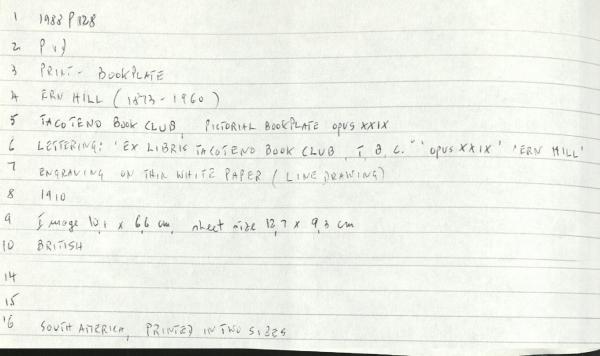 1 1988 P 128
2 P v}
3 PRINT - BOOKPLATE
4 ERN HILL (1873-1960)
5 TACOTEND BOOK CLUB, PICTORIAL BOOKPLATE OPUS XXIX
6 LETTERING: 'EX LIBRIS TACOTEND BOOK CLUB, T, B, C.' 'OPUS XXIX' 'ERN HILL'
7 ENGRAVING ON THIN WHITE PAPER (LINE DRAWING)
8 1910
9 Image 10,1 x 6,6 cm, sheet size 12,7 x 9,3 cm
10 BRITISH
14
15
16 SOUTH AMERICA, PRINTED IN TWO SIZES